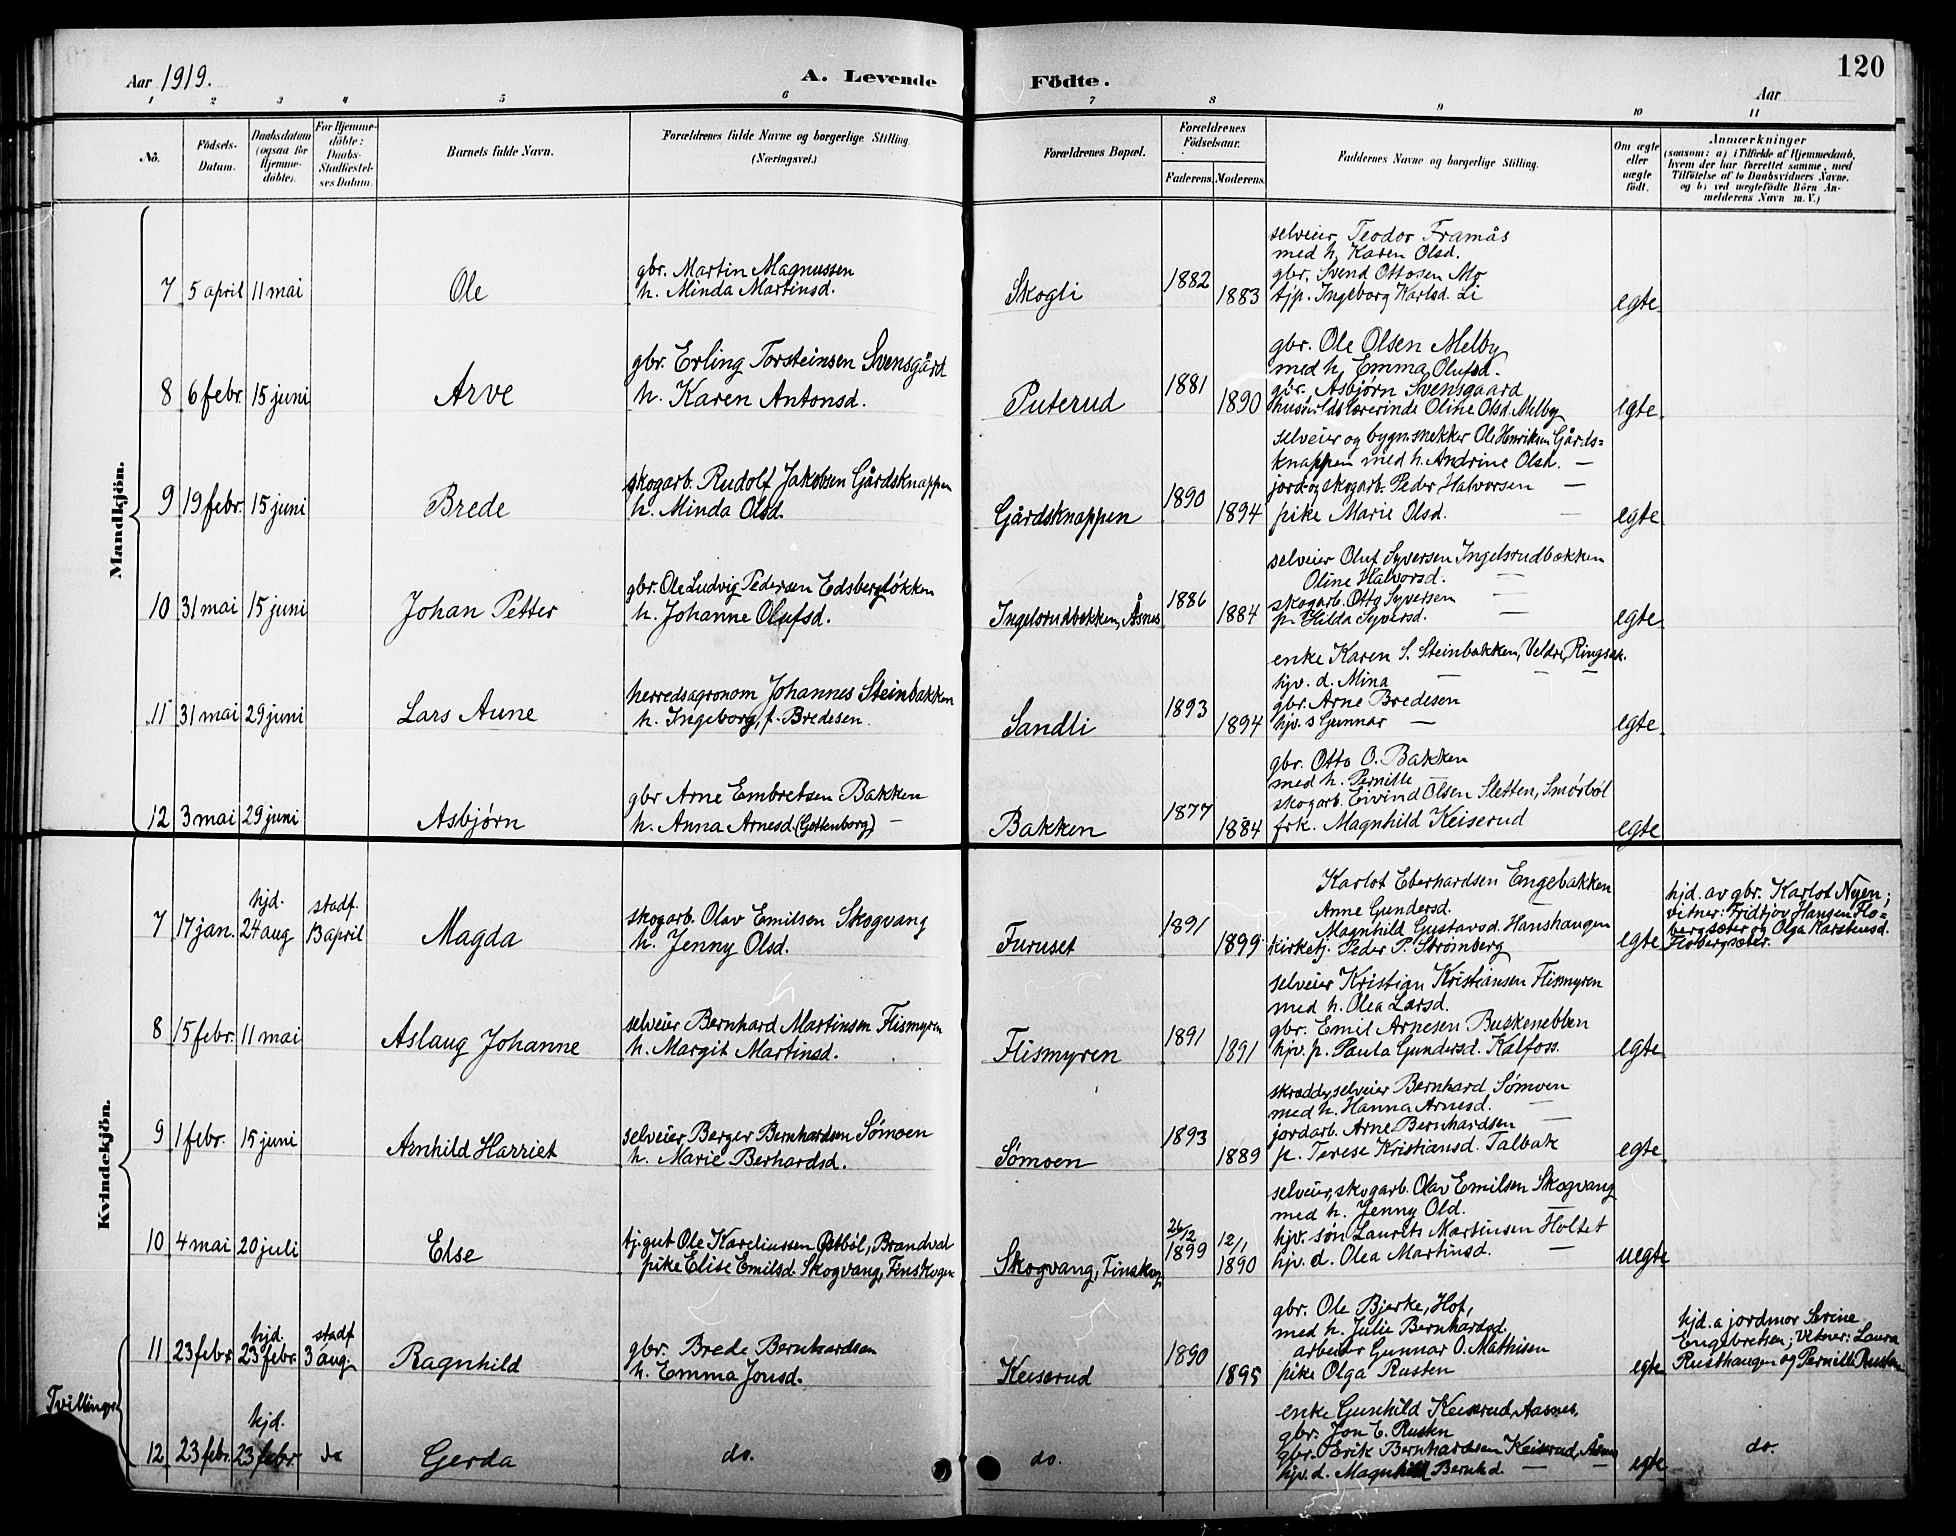 Aar 1919.
A. Levende Födte.
120
Aar
1 2 3 4 5 6 7 8 9 10 11
No.
Födsels-Datum.
Daabsdatum (ogsaa for Hjemmedöbte).
For Hjemmedöbte: Daabs-Stadfæstelses Datum.
Barnets fulde Navn.
Forældrenes fulde Navne og borgerlige Stilling. (Næringsvei.)
Forældrenes Bopæl.
Forældrenes Födselsaar.
Faderens. Moderens.
Faddernes Navne og borgerlige Stilling.
Om ægte eller uægte födt.
Anmærkninger
(saasom: a) i Tilfælde af Hjemmedaab, hvem der har forrettet samme, med Tilföielse af to Daabsvidners Navne, og b) ved uægtefödte Börn Anmelderens Navn m. V.)
Mandkjön.
7 5 april 11 mai Ole
gbr. Martin Magnussen
h. Minda Martinsd.
Skogli 1882 1883
selveier Teodor Framås
med h. Karen Olsd.
gbr. Svend Ottosen Mo
tjp. Ingeborg Karlsd. Li
egte
8 6 febr. 15 juni Arve
gbr. Erling Torsteinsen Svensgård
h. Karen Antonsd.
Puterud 1881 1890
gbr. Ole Olsen Melby
med h. Emma Olufsd.
gbr. Asbjørn Svensgaard
husholdslærerinde Oline Olsd. Melby
egte
9 19 febr. 15 juni Brede
skogarb. Rudolf Jakobsen Gårdsknappen
h. Minda Olsd.
Gårdsknappen 1890 1894
selveier og bygn.snekker Ole Henriksen Gårds=
knappen med h. Andrine Olsd. —
jord- og skogarb. Peder Halvorsen —
pike Marie Olsd. —
egte
10 31 mai 15 juni Johan Petter
gbr. Ole Ludvig Pedersen Edsbergløkken
h. Johanne Olufsd.
Ingelsrudbækken, Åsnes 1886 1884
selveier Oluf Syversen Ingelsrudbækken
Oline Halvorsd. —
skogarb. Otto Syversen —
p. Hilda Syversd. —
egte
11 31 mai 29 juni Lars Aune
herredsagronom Johannes Steinbakken
h. Ingeborg, f. Bredesen
Sandli 1893 1894
enke Karen S. Steinbakken, Veldre, Ringsak.
hjv. d. Mina — — —
gbr. Arne Bredesen
hjv. s Gunnar —
egte
12 3 mai 29 juni Asbjørn
gbr Arne Embretsen Bakken
h. Anna Arnesd (Gottenborg) —
Bakken 1877 1884
gbr. Otto O. Bakken
med h. Pernille —
skogarb. Eivind Olsen Sletten, Smørbøl
frk. Magnhild Keiserud
egte
Kvindekjön.
7 17 jan. hjd. 24 aug stadf. 13 april Magda
skogarb. Olav Emilsen Skogvang
h. Jenny Olsd.
Furuset 1891 1899
Karlot Eberhardsen Engebakken
Anne Gundersd. —
Magnhild Gustavsd. Hanshaugen
kirketj. Peder P. Strømberg
egte
hjd. av gbr. Karlot Nyen;
vitner: Fridtjov Hansen Flo=
bergsæter og Olga Karstensd.
Flobergsæter.
8 15 febr. 11 mai Aslaug Johanne
selveier Bernhard Martinsen Flismyren
h. Margit Martinsd.
Flismyren 1891 1891
selveier Kristian Kristiansen Flismyren
med h. Olea Larsd.
gbr. Emil Arnesen Buskenebben
hjv. p. Paula Gundersd. Kalfoss.
egte
9 1 febr. 15 juni Arnhild Harriet
selveier Berger Bernhardsen Sømoen
h. Marie Berhardsd.
Sømoen 1893 1889
skrædder, selveier Bernhard Sømoen
med h. Hanna Arnesd. —
jordarb. Arne Bernhardsen —
p. Terese Kristiansd. Talbak
egte
10 4 mai 20 juli Else
tj.gut Ole Kareliussen Østbøl, Brandval
pike Elise Emilsd. Skogvang, Finskogen
Skogvang, Finskog 26/12 1899 12/1 1890
selveier, skogarb. Olav Emilsen Skogvang
med h. Jenny Old. —
hjv. søn Laurits Martinsen Holtet
hjv. d. Olea Martinsd. —
uegte
Tvillinger
11 23 febr. hjd. 23 febr. stadf 3 aug. Ragnhild
gbr. Brede Bernhardsen
h. Emma Jonsd.
Keiserud 1890 1895
gbr. Ole Bjerke, Hof,
med h. Julie Bernhardsd.
arbeider Gunnar O. Mathisen
pike Olga Rusten
egte
hjd. a jordmor Serine
Engebretsen; vitner: Laura
Rusthaugen og Pernille Rusten
12 23 febr. hjd. 23 febr. do Gerda
do.
do.
enke Gunhild Keiserud, Aasnes,
gbr. Jon E. Rusten
gbr. Erik Bernhardsen Keiserud, Åsnes
hjv. d. Magnhild Bernhd. — —
egte
do.